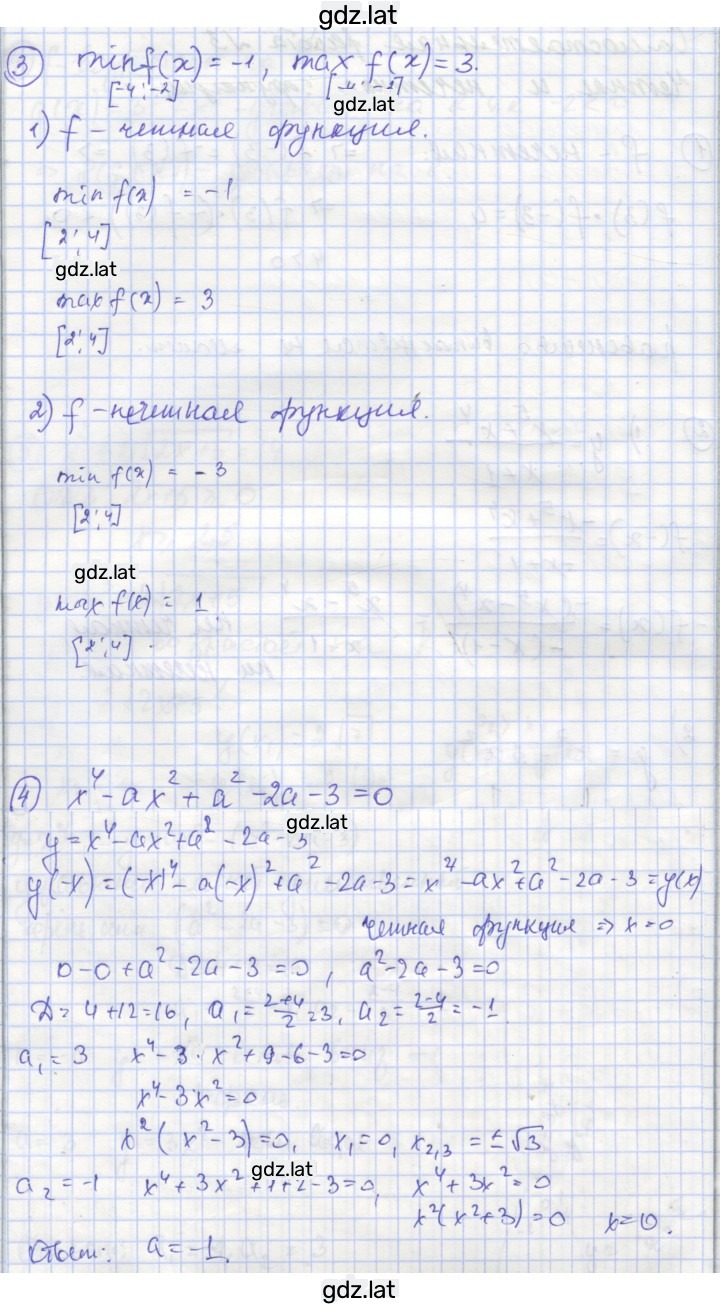 gdz.lat
③ min f(x) = -1, max f(x) = 3.
[-4; -2] [-4; -2]
gdz.lat
1) f - четная функция.
min f(x) = -1
[2; 4]
gdz.lat
max f(x) = 3
[2; 4]
2) f - нечетная функция.
min f(x) = - 3
[2; 4]
gdz.lat
max f(x) = 1.
[2; 4]
④ x⁴ - ax² + a² - 2a - 3 = 0
gdz.lat
y = x⁴ - ax² + a² - 2a - 3
y(-x) = (-x)⁴ - a(-x)² + a² - 2a - 3 = x⁴ - ax² + a² - 2a - 3 = y(x)
четная функция ⇒ x = 0
0 - 0 + a² - 2a - 3 = 0, a² - 2a - 3 = 0
D = 4 + 12 = 16, a₁ = (2+4)/2 = 3, a₂ = (2-4)/2 = -1
a₁ = 3 x⁴ - 3 · x² + 9 - 6 - 3 = 0
x⁴ - 3x² = 0
x² (x² - 3) = 0, x₁ = 0, x₂,₃ = ± √3
gdz.lat
a₂ = -1 x⁴ + 3x² + 1 + 2 - 3 = 0, x⁴ + 3x² = 0
x² (x² + 3) = 0 x = 0.
Ответ: a = -1.
gdz.lat